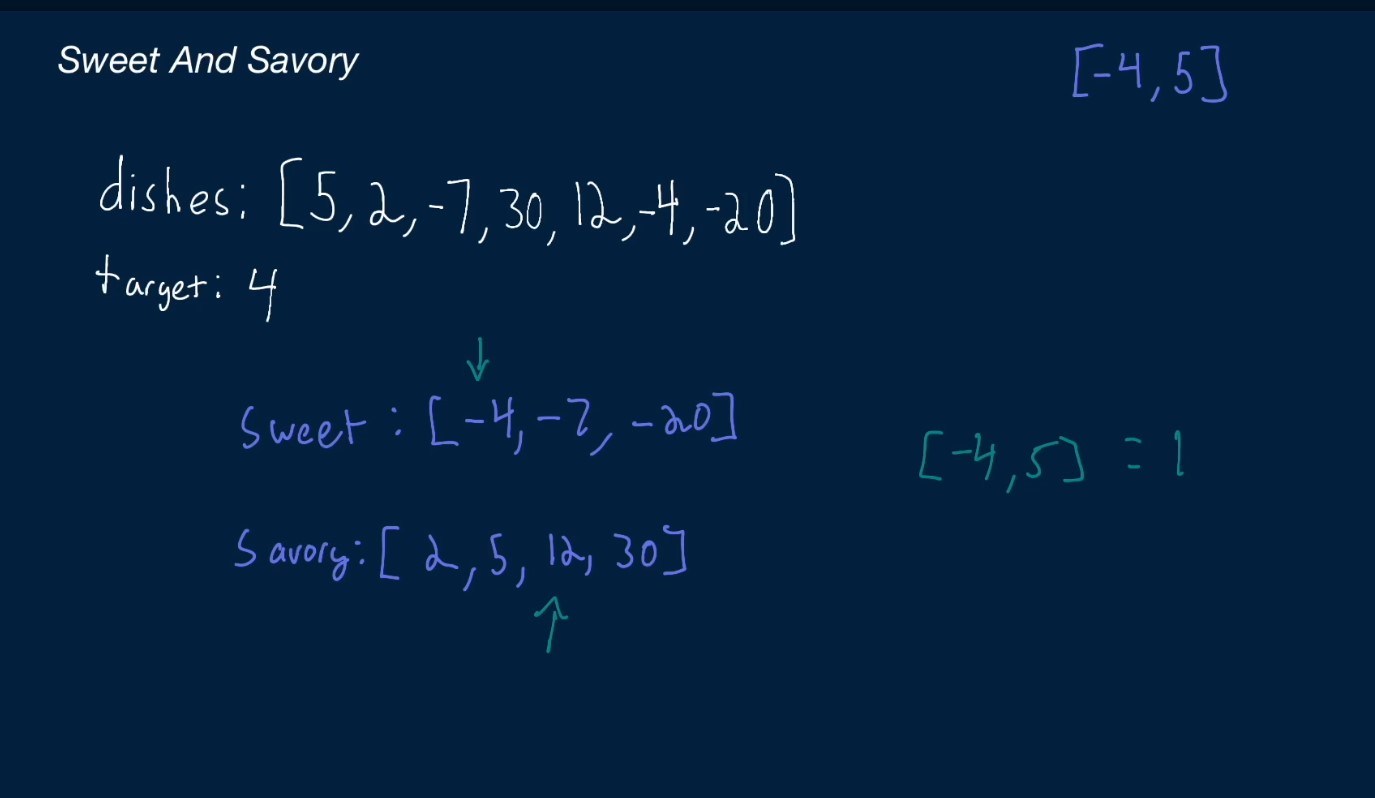 Sweet And Savory
[-4,5]
dishes: [5, 2, -7, 30, 12, -4, -20]
target: 4
sweet : [-4, -7, -20]
[-4,5] = 1
Savory: [ 2, 5, 12, 30]